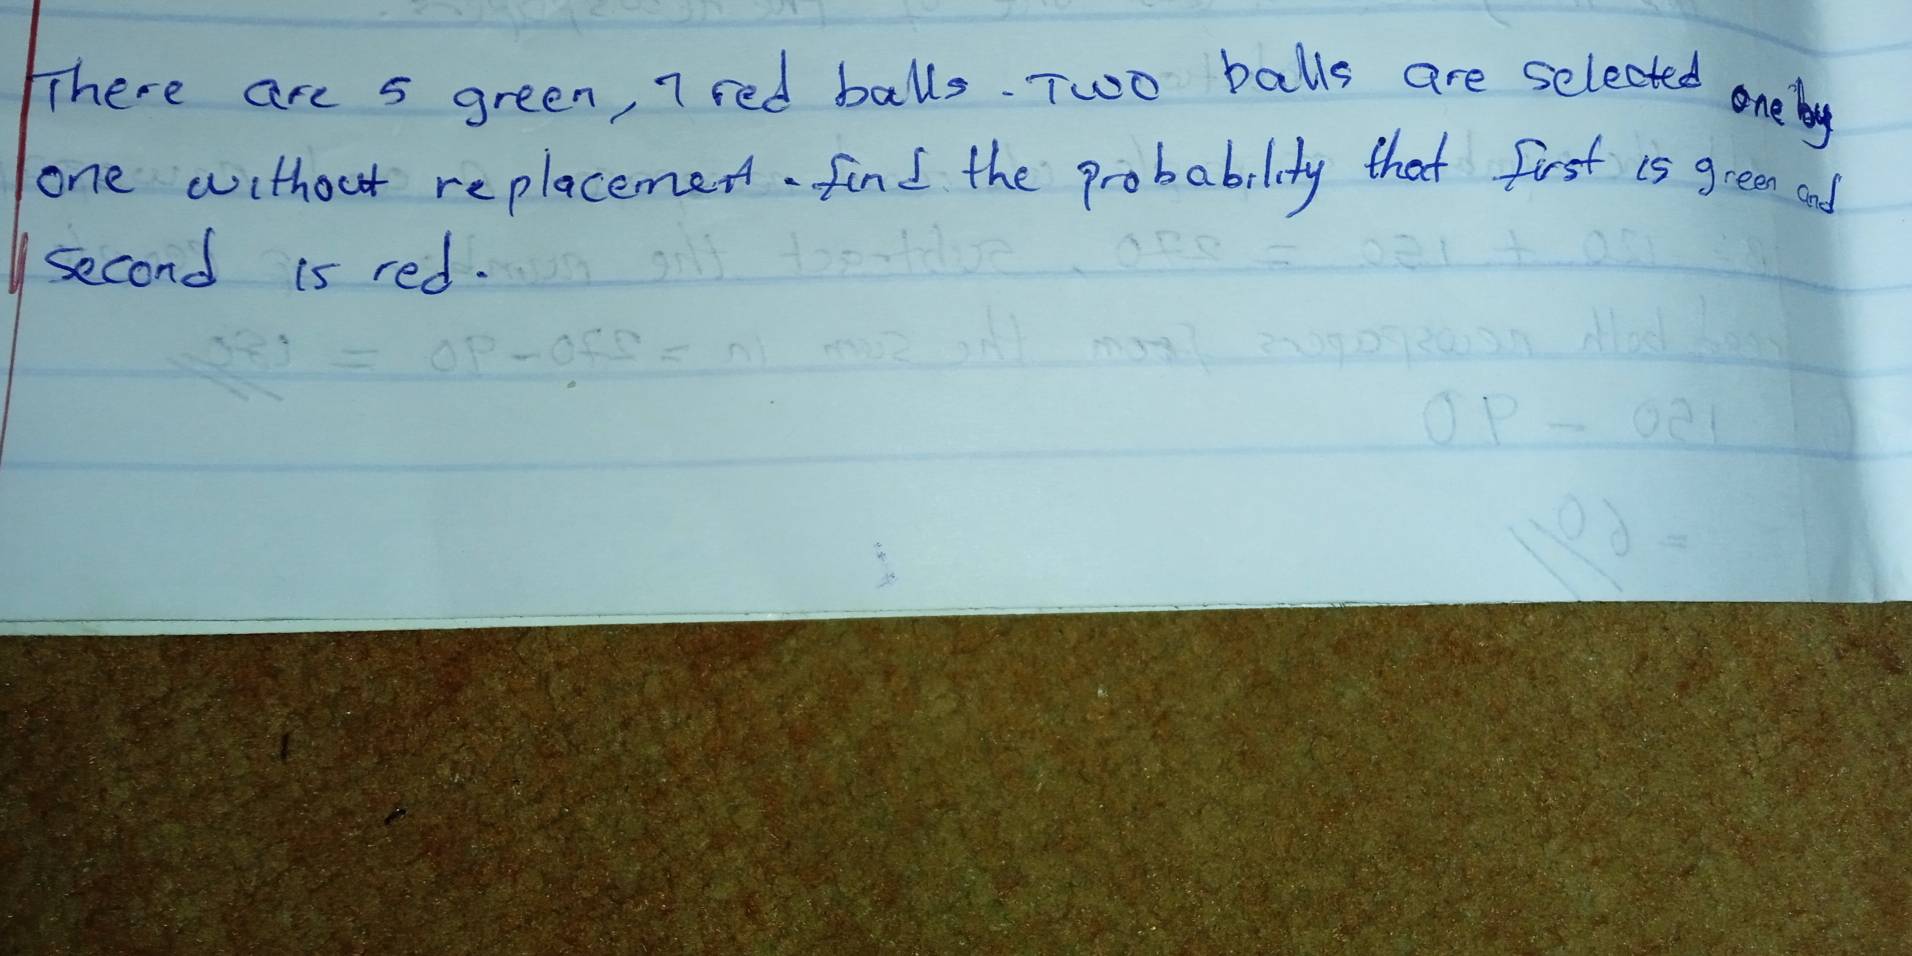 There are 5 green, 7 red balls. Two balls are selected one by
one without replacement. find the probability that first is green and
second is red.